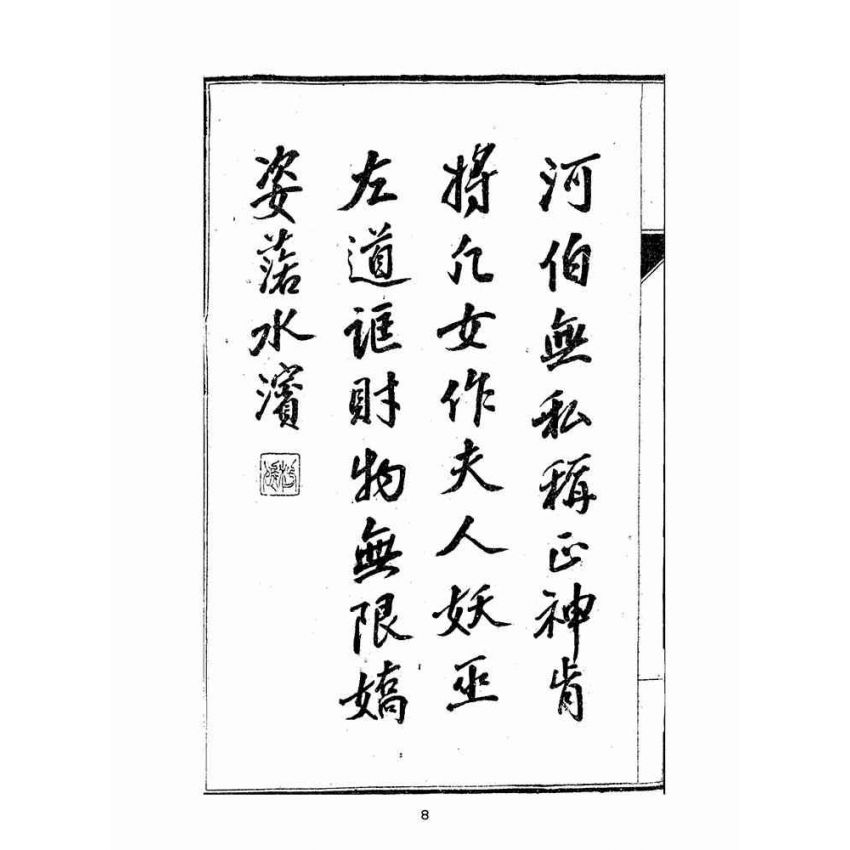 河伯無私稱正神肯
將凡女作夫人妖巫
左道誆財物無限嬌
姿落水濱
8